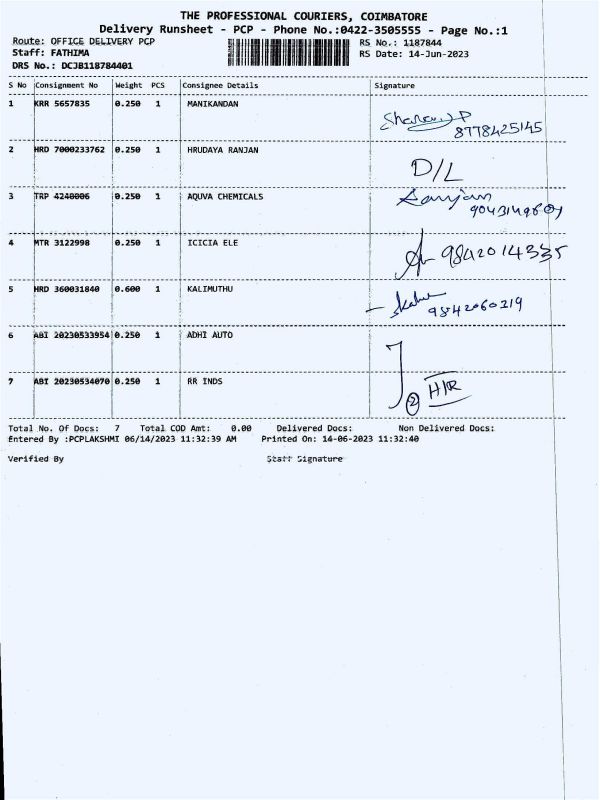 THE PROFESSIONAL COURIERS, COIMBATORE
Delivery Runsheet - PCP - Phone No.:0422-3505555 - Page No.:1
Route: OFFICE DELIVERY PCP
RS No.: 1187844
Staff: FATHIMA
RS Date: 14-Jun-2023
DRS No.: DCJB118784401
S No Consignment No Weight PCS Consignee Details Signature
1 KRR 5657835 0.250 1 MANIKANDAN
8778425145
2 HRD 7000233762 0.250 1 HRUDAYA RANJAN D/L
3 TRP 4240006 0.250 1 AQUVA CHEMICALS
4 MTR 3122998 0.250 1 ICICIA ELE 9842014335
5 HRD 360031840 0.600 1 KALIMUTHU
9842060219
6 ABI 20230533954 0.250 1 ADHI AUTO
7 ABI 20230534070 0.250 1 RR INDS
2
Total No. Of Docs: 7 Total COD Amt: 0.00 Delivered Docs: Non Delivered Docs:
Entered By :PCPLAKSHMI 06/14/2023 11:32:39 AM Printed On: 14-06-2023 11:32:40
Verified By Staff Signature